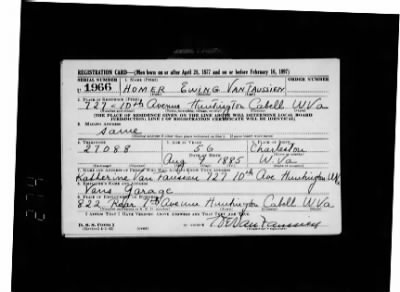 REGISTRATION CARD—(Men born on or after April 28, 1877 and on or before February 16, 1897)
SERIAL NUMBER 1. NAME (Print) ORDER NUMBER
U 1966 HOMER EWING VAN FAUSSIEN
2. PLACE OF RESIDENCE (Print)
727 - 10th Avenue Huntington Cabell W Va
[THE PLACE OF RESIDENCE GIVEN ON THE LINE ABOVE WILL DETERMINE LOCAL BOARD
JURISDICTION; LINE 2 OF REGISTRATION CERTIFICATE WILL BE IDENTICAL]
3. MAILING ADDRESS
same
4. TELEPHONE 5. AGE IN YEARS 6. PLACE OF BIRTH
27088 56 Charleston
DATE OF BIRTH
Aug 7 1885 W Va
7. NAME AND ADDRESS OF PERSON WHO WILL ALWAYS KNOW YOUR ADDRESS
Katherine Van Faussien 727 10th Ave Huntington W Va
8. EMPLOYER'S NAME AND ADDRESS
Vans Garage
9. PLACE OF EMPLOYMENT OR BUSINESS
822 Rear 7th Avenue Huntington Cabell W Va
I AFFIRM THAT I HAVE VERIFIED ABOVE ANSWERS AND THAT THEY ARE TRUE.
D. S. S. Form 1